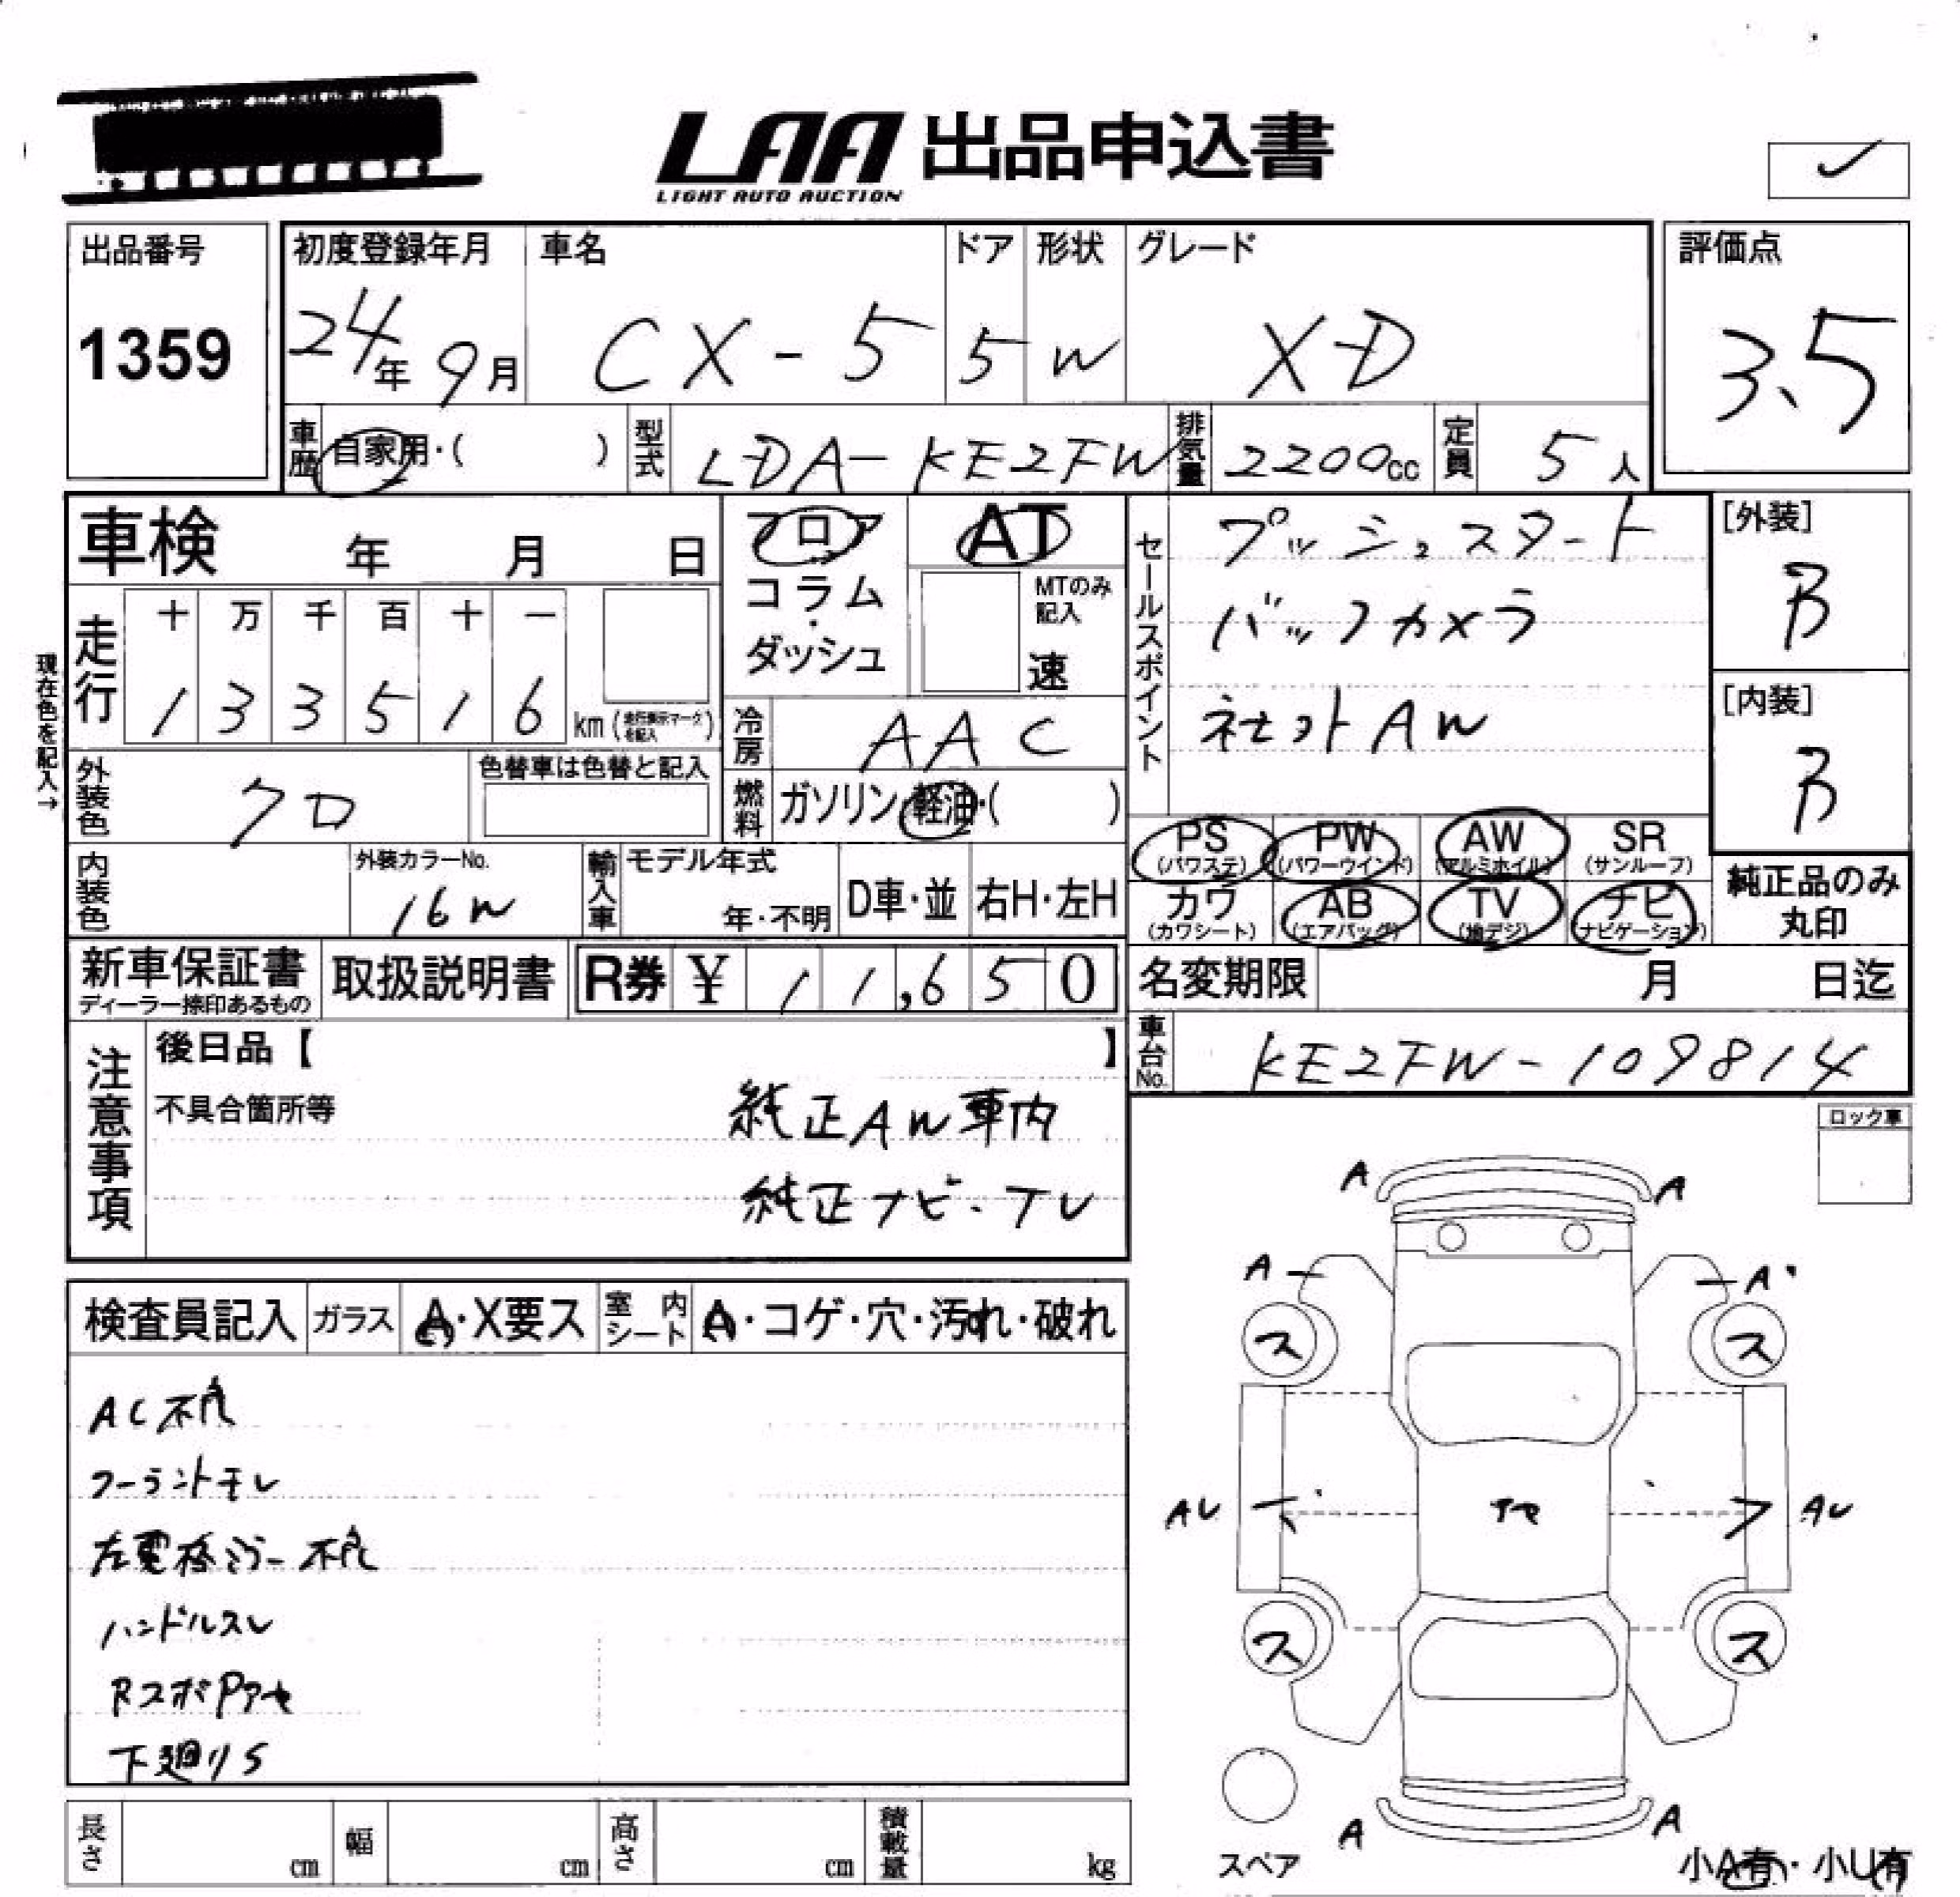 LAA 出品申込書
LIGHT AUTO AUCTION
出品番号
1359
初度登録年月
24年 9月
車名
CX-5
ドア
5
形状
W
グレード
XD
評価点
3.5
車歴
自家用・( )
型式
LDA-KE2FW
排気量
2200cc
定員
5人
車検 年 月 日
フロア
コラム
ダッシュ
AT
MTのみ
記入
速
セールスポイント
プッシュスタート
バックカメラ
社セットAW
[外装]
B
[内装]
B
現在色を記入→
走行
十 万 千 百 十 一
1 3 3 5 1 6
km (走行表示マークを記入)
冷房
AAC
外装色
クロ
色替車は色替と記入
燃料
ガソリン・軽油・( )
内装色
外装カラーNo.
16W
輸入車
モデル年式
年・不明
D車・並
右H・左H
PS
(パワステ)
PW
(パワーウインド)
AW
(アルミホイル)
SR
(サンルーフ)
カワ
(カワシート)
AB
(エアバッグ)
TV
(地デジ)
ナビ
(ナビゲーション)
純正品のみ
丸印
新車保証書
ディーラー捺印あるもの
取扱説明書
R券 ¥ 11,650
名変期限 月 日迄
車台No.
KE2FW-109814
注意事項
後日品【 】
不具合箇所等
純正AW車内
純正ナビ・TV
ロック車
検査員記入
ガラス
A・X要ス
室内シート
A・コゲ・穴・汚れ・破れ
AC不良
クーラントモレ
左電格ミラー不良
ハンドルスレ
RスポPアセ
下廻りS
A A
A A
ス ス
AU アセ AU
ス ス
A A
スペア
小A有・小U有
長さ cm
幅 cm
高さ cm
積載量 kg